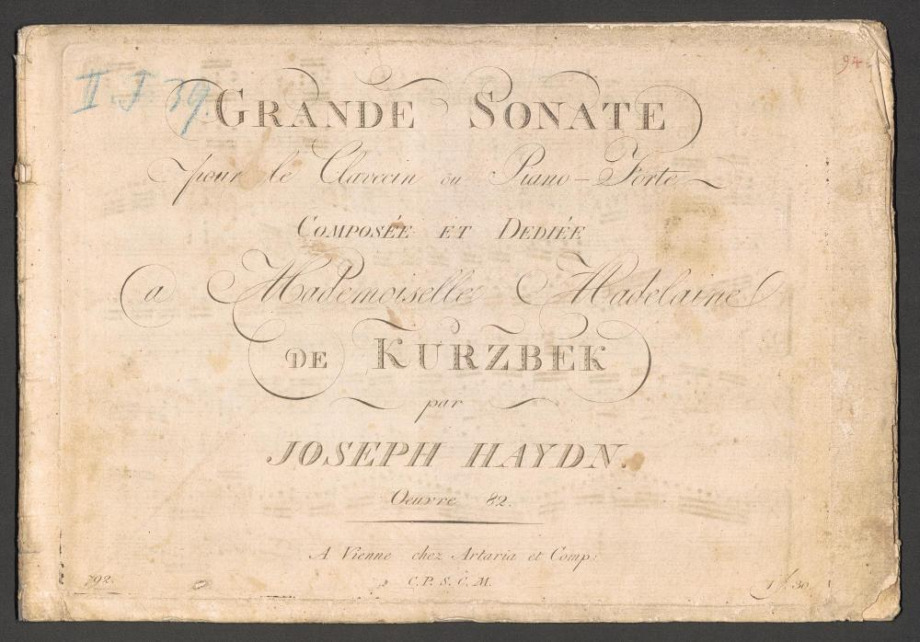 II J 39.
94.
GRANDE SONATE
pour le Clavecin ou Piano-Forte
COMPOSÉE ET DEDIÉE
a Mademoiselle Madelaine
DE KURZBEK
par
JOSEPH HAYDN.
Oeuvre 82.
A Vienne chez Artaria et Comp:
C.P.S.C.M.
792.
1 f. 30